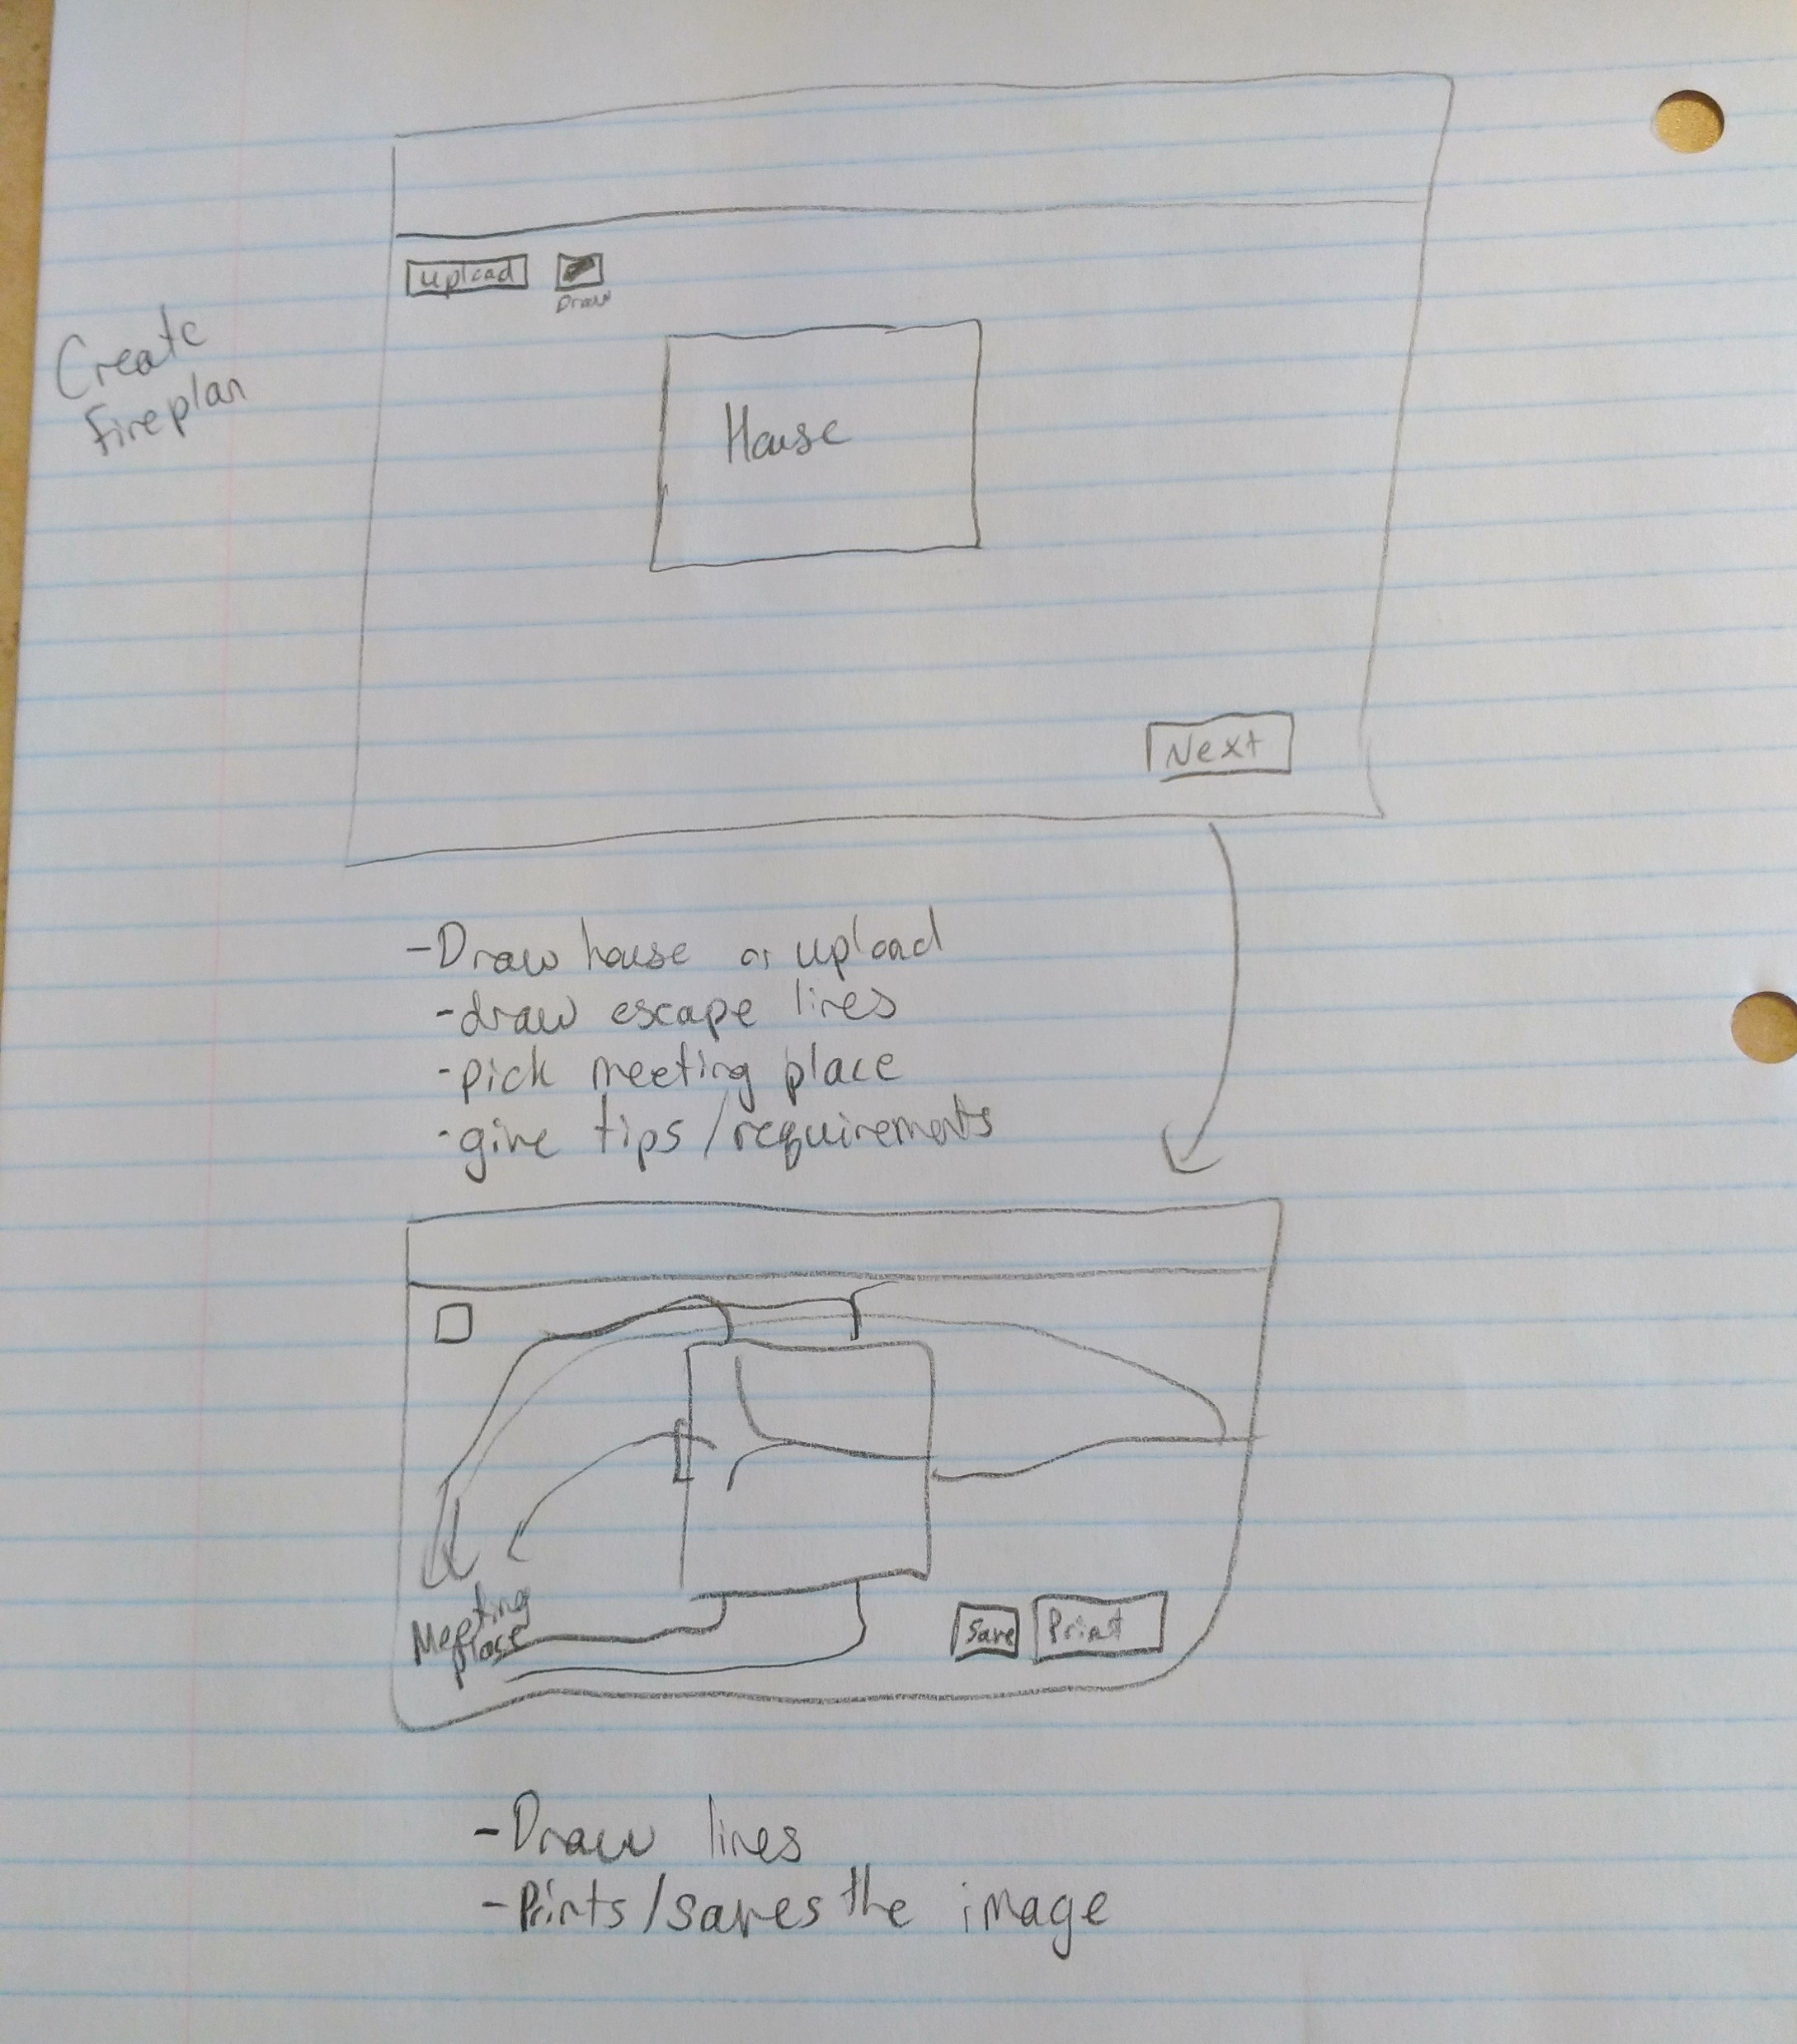 upload
Draw
Create
fireplan
House
Next
-Draw house or upload
-draw escape lines
-pick meeting place
-give tips/requirements
Meeting
place
Save
Print
-Draw lines
-Prints/saves the image